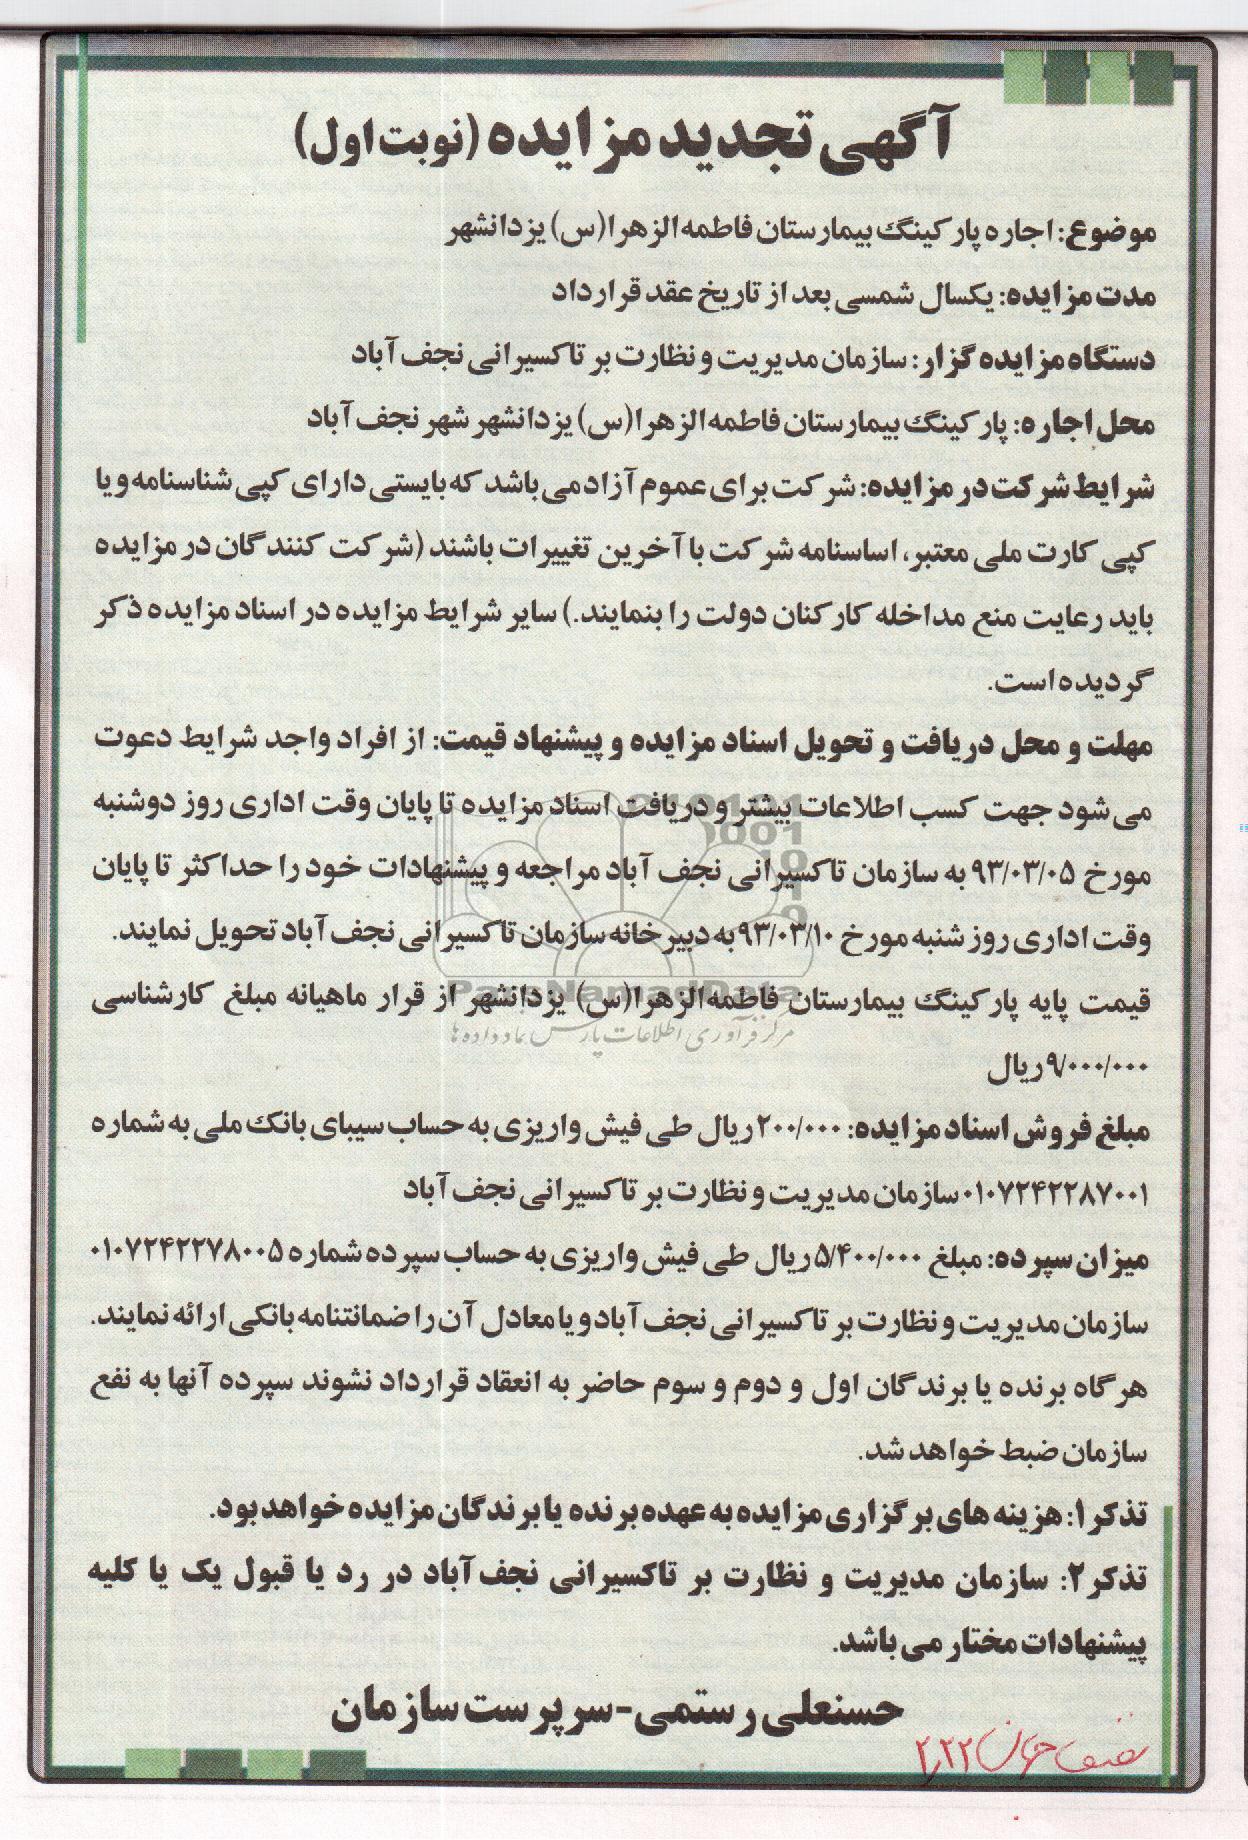 آگهی تجدید مزایده (نوبت اول)
موضوع: اجاره پارکینگ بیمارستان فاطمه الزهرا(س) یزدانشهر
مدت مزایده: یکسال شمسی بعد از تاریخ عقد قرارداد
دستگاه مزایده گزار: سازمان مدیریت و نظارت بر تاکسیرانی نجف آباد
محل اجاره: پارکینگ بیمارستان فاطمه الزهرا(س) یزدانشهر شهر نجف آباد
شرایط شرکت در مزایده: شرکت برای عموم آزاد می باشد که بایستی دارای کپی شناسنامه و یا
کپی کارت ملی معتبر، اساسنامه شرکت با آخرین تغییرات باشند (شرکت کنندگان در مزایده
باید رعایت منع مداخله کارکنان دولت را بنمایند.) سایر شرایط مزایده در اسناد مزایده ذکر
گردیده است.
مهلت و محل دریافت و تحویل اسناد مزایده و پیشنهاد قیمت: از افراد واجد شرایط دعوت
می شود جهت کسب اطلاعات بیشتر و دریافت اسناد مزایده تا پایان وقت اداری روز دوشنبه
مورخ ۹۳/۰۳/۰۵ به سازمان تاکسیرانی نجف آباد مراجعه و پیشنهادات خود را حداکثر تا پایان
وقت اداری روز شنبه مورخ ۹۳/۰۳/۱۰ به دبیرخانه سازمان تاکسیرانی نجف آباد تحویل نمایند.
ParsNamadData
قیمت پایه پارکینگ بیمارستان فاطمه الزهرا(س) یزدانشهر از قرار ماهیانه مبلغ کارشناسی
مرکز فرآوری اطلاعات پارس نماد داده ها
۹/۰۰۰/۰۰۰ ریال
مبلغ فروش اسناد مزایده: ۲۰۰/۰۰۰ ریال طی فیش واریزی به حساب سیبای بانک ملی به شماره
۰۱۰۷۲۴۲۲۸۷۰۰۱ سازمان مدیریت و نظارت بر تاکسیرانی نجف آباد
میزان سپرده: مبلغ ۵/۴۰۰/۰۰۰ ریال طی فیش واریزی به حساب سپرده شماره ۰۱۰۷۲۴۲۲۷۸۰۰۵
سازمان مدیریت و نظارت بر تاکسیرانی نجف آباد و یا معادل آن را ضمانتنامه بانکی ارائه نمایند.
هرگاه برنده یا برندگان اول و دوم و سوم حاضر به انعقاد قرارداد نشوند سپرده آنها به نفع
سازمان ضبط خواهد شد.
تذکر۱: هزینه های برگزاری مزایده به عهده برنده یا برندگان مزایده خواهد بود.
تذکر۲: سازمان مدیریت و نظارت بر تاکسیرانی نجف آباد در رد یا قبول یک یا کلیه
پیشنهادات مختار می باشد.
حسنعلی رستمی-سرپرست سازمان
نصف جهان ۲،۲۲